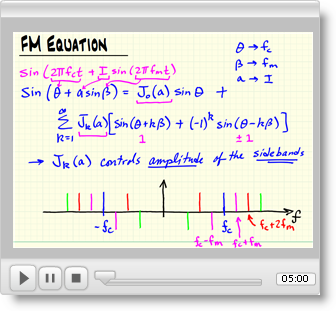 FM EQUATION
sin(2πfct + I sin(2πfmt)
θ → fc
β → fm
a → I
sin(θ + a sin(β) = J₀(a) sin θ +
∞
∑ Jk(a)[sin(θ+kβ) + (-1)ᵏ sin(θ-kβ)]
k=1
1
±1
→ Jk(a) controls amplitude of the sidebands
-fc
fc
f
fc-fm
fc+fm
fc+2fm
05:00